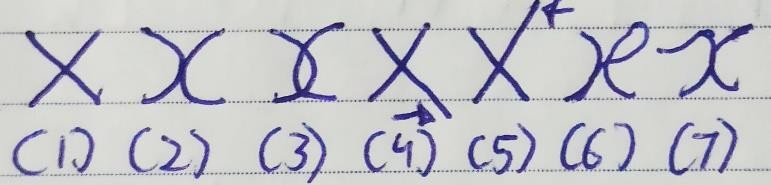 x x x x x x x
(1) (2) (3) (4) (5) (6) (7)